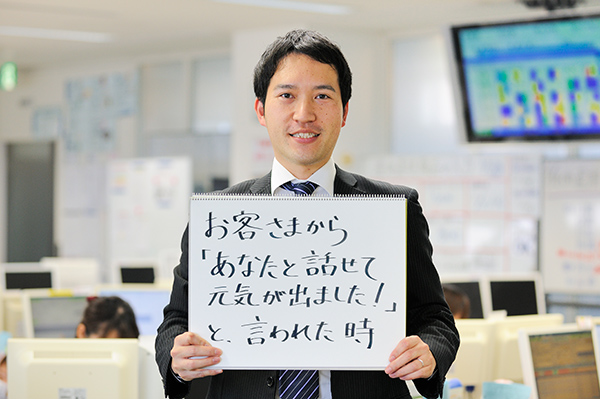 お客さまから
「あなたと話せて
元気が出ました！」
と、言われた時